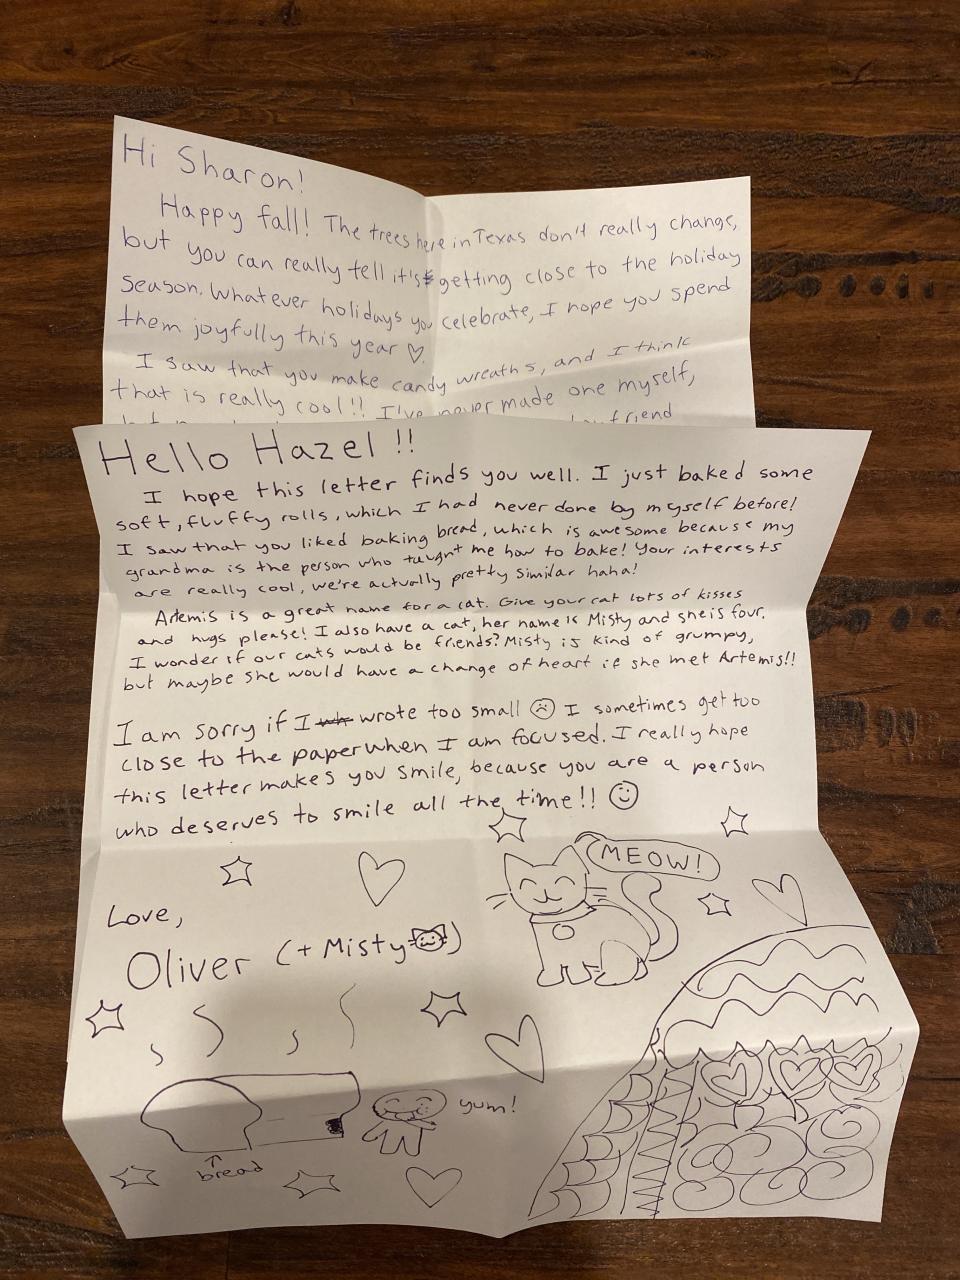 Hi Sharon!
Happy fall! The trees here in Texas don't really change,
but you can really tell it's getting close to the holiday
season. Whatever holidays you celebrate, I hope you spend
them joyfully this year ♡.
I saw that you make candy wreaths, and I think
that is really cool!! I've never made one myself,
friend
Hello Hazel!!
I hope this letter finds you well. I just baked some
soft, fluffy rolls, which I had never done by myself before!
I saw that you liked baking bread, which is awesome because my
grandma is the person who taught me how to bake! Your interests
are really cool, we're actually pretty similar haha!
Artemis is a great name for a cat. Give your cat lots of kisses
and hugs please! I also have a cat, her name is Misty and she is four.
I wonder if our cats would be friends? Misty is kind of grumpy,
but maybe she would have a change of heart if she met Artemis!!
I am sorry if I wrote too small ☹ I sometimes get too
close to the paper when I am focused. I really hope
this letter makes you smile, because you are a person
who deserves to smile all the time!! ☺
MEOW!
Love,
Oliver (+ Misty)
yum!
↑
bread